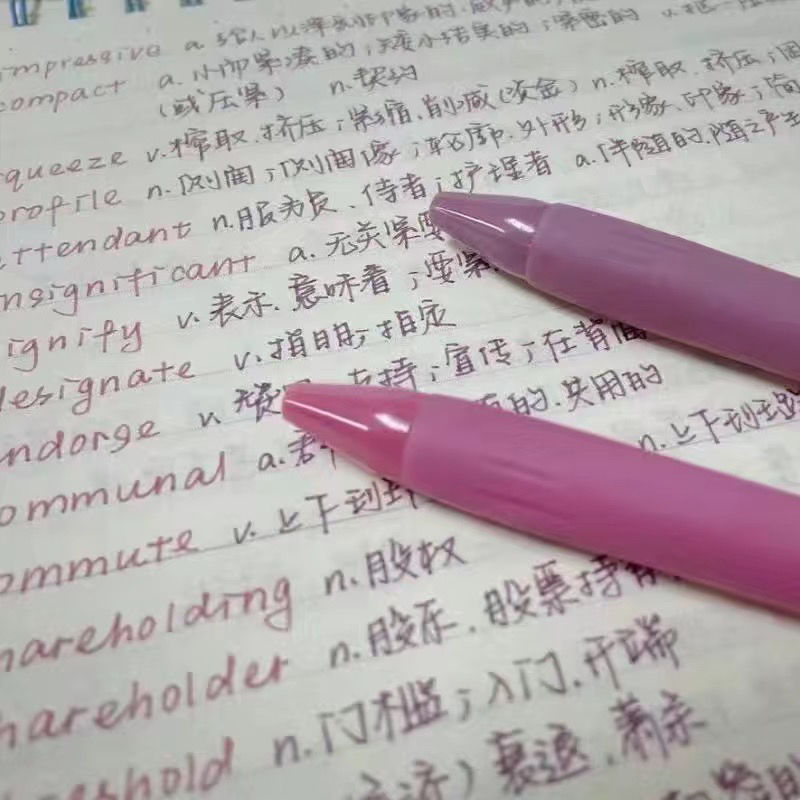 impressive a. 给人以深刻印象的.
compact a. 小而紧凑的;紧密的
(或压紧) n.契约
queeze v.榨取.挤压;紧缩.削减(资金) n.榨取.挤压;
profile n.侧面;侧面像;轮廓.外形;形象.印象;
ttendant n.服务员.侍者;护理者 a.伴随的.随之产生
nsignificant a.无关紧要
ignify v.表示.意味着;要紧
designate v.指明;指定
ndorge v. 支持;宣传;在背面
ommunal a. 的.共用的
ommute v.上下 n.上下
hareholding n.股权
hareholder n.股东.股票持有
eshold n.门槛;入门.开端
) 衰退.萧条